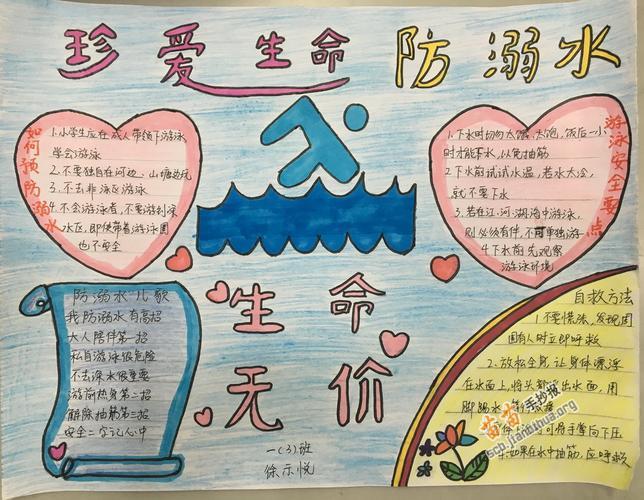 珍爱生命 防溺水
如何预防溺水
1.小学生应在成人带领下游泳
学会游泳
2.不要独自在河边、山塘边玩
3.不去非泳区游泳
4.不会游泳者,不要游到深
水区,即使带着游泳圈
也不安全
游泳安全要点
1.下水时切勿太饿、太饱,饭后一小
时才能下水,以免抽筋
2.下水前试试水温,若水太冷,
就不要下水
3.若在江、河、湖、海中游泳,
则必须有伴,不可单独游
4.下水前先观察
游泳环境
防溺水儿歌
我防溺水有高招
大人陪伴第一招
私自游泳很危险
不去深水很重要
游前热身第二招
解除抽筋第三招
安全二字记心中
生命
无价
一(3)班
徐示悦
自救方法
1.不要慌张,发现周
围有人时立即呼救
2.放松全身,让身体漂浮
在水面上,将头部浮出水面,用
脚踢水
可将手掌向下压
如果在水中抽筋,应呼救
苗苗手抄报
scb.jianbihua.org